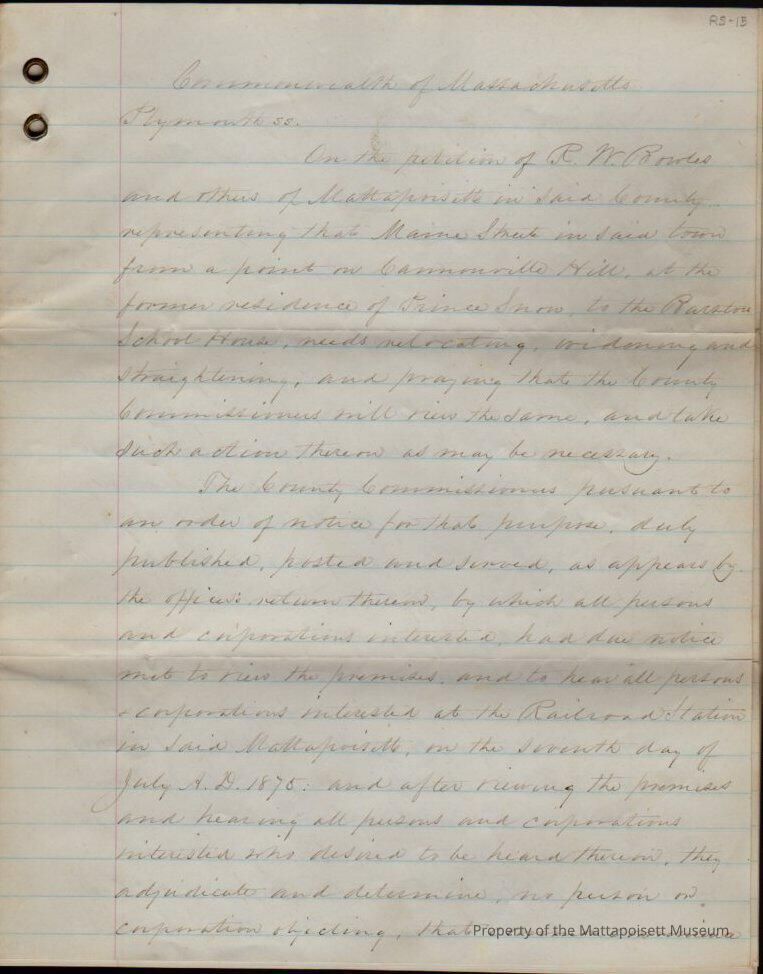 RS-13
Commonwealth of Massachusetts
Plymouth ss.
On the petition of R. W. Bowles
and others of Mattapoisett in said County
representing that Maine Street in said town
from a point on Cannonville Hill, at the
former residence of Prince Snow, to the Barstow
School House, needs relocating, widening and
straightening, and praying that the County
Commissioners will view the same, and take
such action thereon as may be necessary.
The County Commissioners pursuant to
an order of notice for that purpose, duly
published, posted and served, as appears by
the officers return thereon, by which all persons
and corporations interested, had due notice
met to view the premises, and to hear all persons
& corporations interested at the Railroad Station
in said Mattapoisett, on the seventh day of
July A. D. 1875: and after viewing the premises
and hearing all persons and corporations
interested who desired to be heard thereon, they
adjudicate and determine, no person or
corporation objecting, that
Property of the Mattapoisett Museum